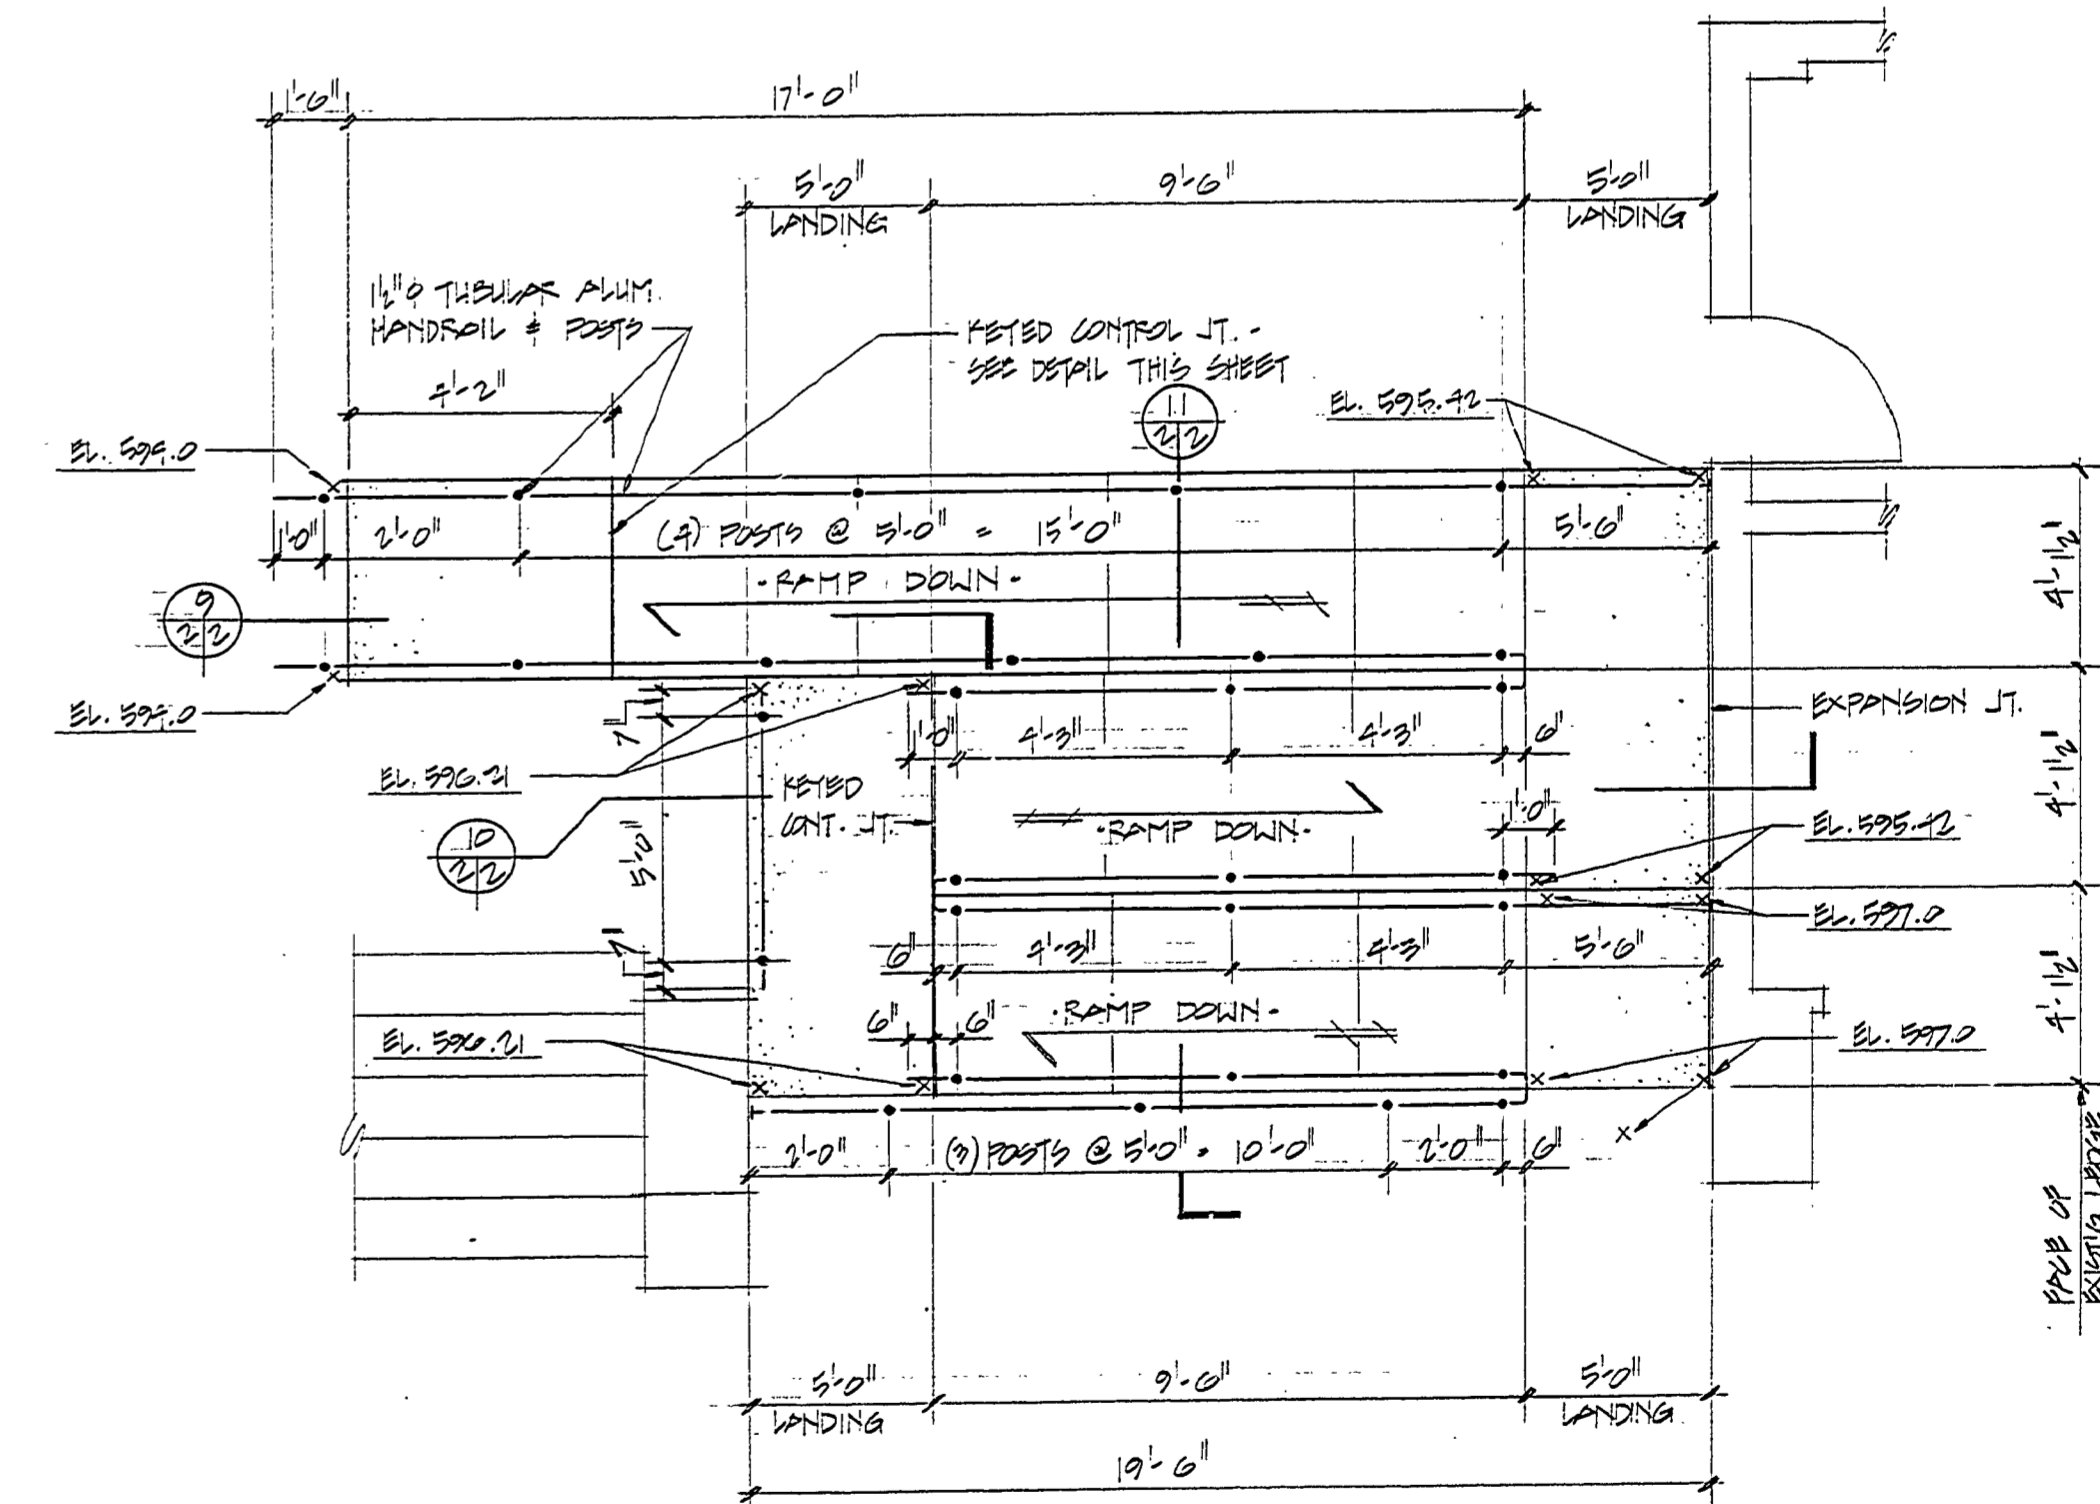 1'-6"
17'-0"
5'-0"
LANDING
9'-6"
5'-0"
LANDING
1½"φ TUBULAR ALUM.
HANDRAIL & POSTS
KEYED CONTROL JT. -
SEE DETAIL THIS SHEET
4'-2"
11
2 2
EL. 595.42
EL. 594.0
1'-0"
2'-0"
(4) POSTS @ 5'-0" = 15'-0"
5'-6"
4'-1½"
·RAMP DOWN·
9
2 2
EL. 594.0
EXPANSION JT.
7"
1'-0"
4'-3"
4'-3"
6"
4'-1½"
EL. 596.21
KEYED
CONT. JT.
1'-0"
·RAMP DOWN·
EL. 595.42
10
2 2
5'-0"
EL. 597.0
6"
4'-3"
4'-3"
5'-6"
4'-1½"
6"
6"
·RAMP DOWN·
EL. 596.21
EL. 597.0
2'-0"
(3) POSTS @ 5'-0" = 10'-0"
2'-0"
6"
FACE OF
5'-0"
LANDING
9'-6"
5'-0"
LANDING
19'-6"